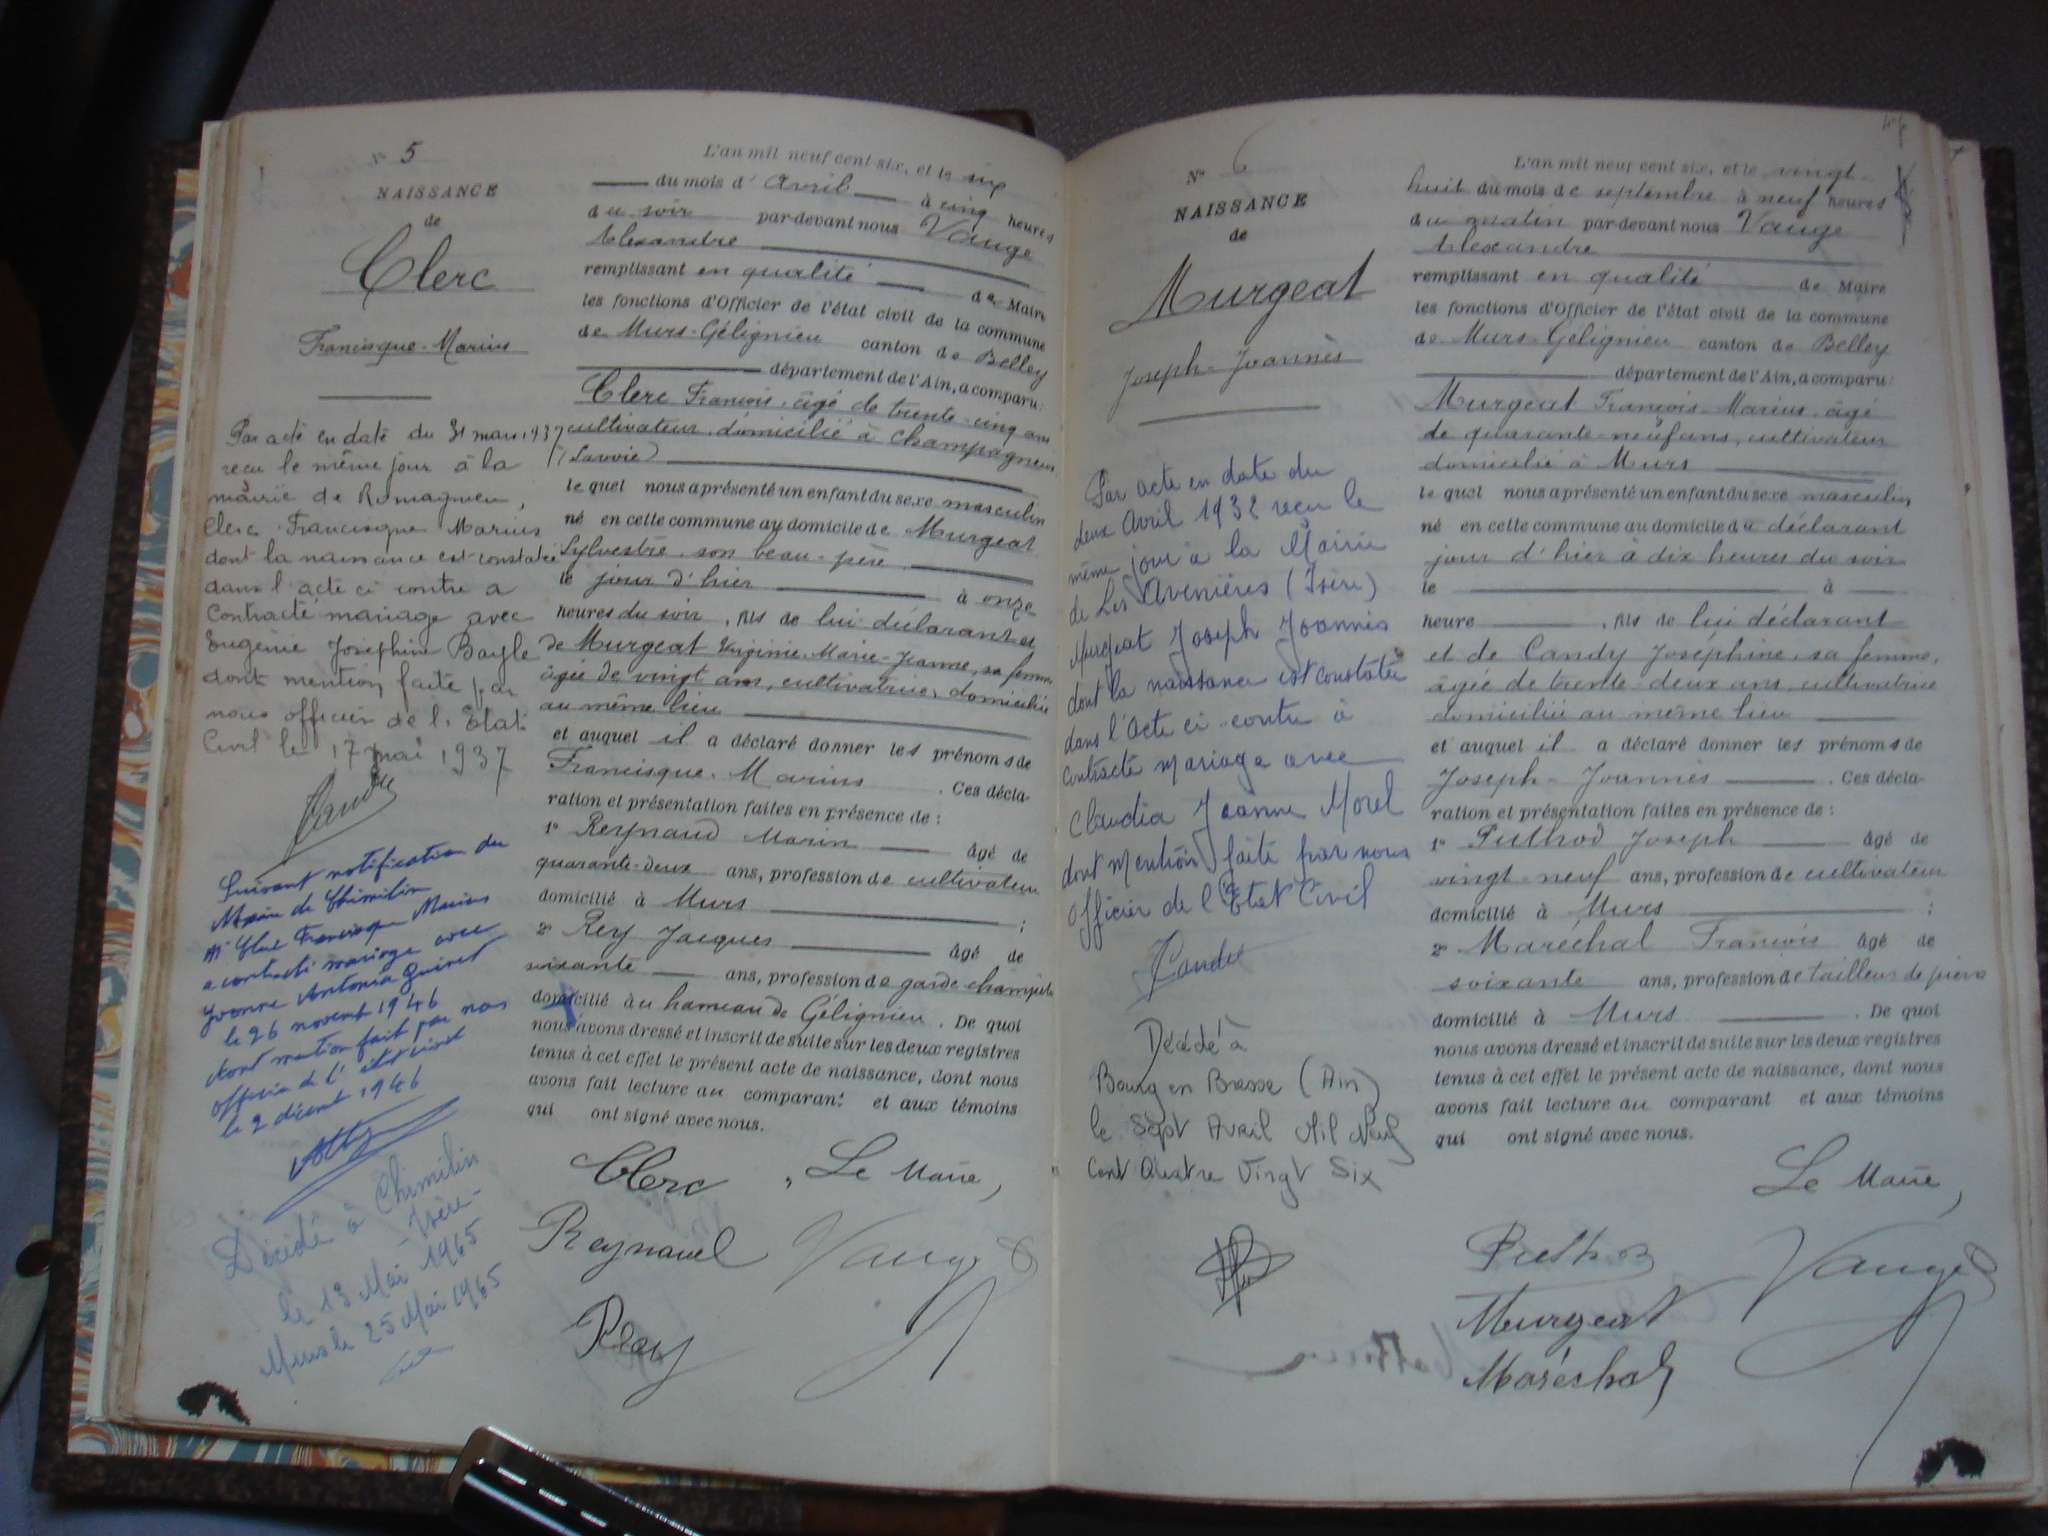 N° 5
NAISSANCE
de
Clerc
Francisque-Marius
Par acte en date du 31 mars 1937
recu le même jour à la
mairie de Romagnieu,
Clerc Francisque Marius
dont la naissance est constatée
dans l'acte ci contre a
Contracté mariage avec
Eugénie Joséphine Bayle
dont mention faite par
nous officier de l'Etat
Civil le 17 mai 1937
Suivant notification du
Maire de Chimilin
Mr Clerc Francisque Marius
a contracté mariage avec
Yvonne Antonia
le 26 novembre 1946
dont mention fait par nous
officier de l'état civil
le 2 décembre 1946
Décédé à Chimilin
- Isère -
le Mai 1965
Murs le 25 Mai 1965
L'an mil neuf cent six, et le six
du mois d'avril à cinq heures
du soir par-devant nous Vauge
Alexandre
remplissant en qualité de Maire
les fonctions d'Officier de l'état civil de la commune
de Murs-Gélignieu canton de Belley
département de l'Ain, a comparu:
Clerc François, âgé de trente-cinq ans
cultivateur, domicilié à Champagneux
(Savoie)
lequel nous a présenté un enfant du sexe masculin
né en cette commune au domicile de Murgeat
Sylvestre, son beau-père
le jour d'hier à onze
heures du soir, fils de lui déclarant et
de Murgeat Virginie-Marie-Jeanne, sa femme
âgée de vingt ans, cultivatrice, domiciliée
au même lieu
et auquel il a déclaré donner les prénoms de
Francisque-Marius. Ces décla-
ration et présentation faites en présence de :
1° Reynaud Marin âgé de
quarante-deux ans, profession de cultivateur
domicilié à Murs ;
2° Rey Jacques âgé de
soixante ans, profession de garde champêtre
domicilié au hameau de Gélignieu. De quoi
nous avons dressé et inscrit de suite sur les deux registres
tenus à cet effet le présent acte de naissance, dont nous
avons fait lecture au comparant et aux témoins
qui ont signé avec nous.
Clerc, Le Maire,
Reynaud Vauge
Rey
N° 6
NAISSANCE
de
Murgeat
Joseph-Joannès
Par acte en date du
deux Avril 1932 recu le
même jour à la Mairie
de Les Avenières (Isère)
Murgeat Joseph Joannès
dont la naissance est constatée
dans l'Acte ci-contre à
Contracté mariage avec
Claudia Jeanne Morel
dont mention faite par nous
officier de l'Etat Civil
Décédé à
Bourg en Bresse (Ain)
le Sept Avril Mil Neuf
Cent Quatre Vingt Six
L'an mil neuf cent six, et le vingt-
huit du mois de septembre à neuf heures
du matin par-devant nous Vauge
Alexandre
remplissant en qualité de Maire
les fonctions d'Officier de l'état civil de la commune
de Murs-Gélignieu canton de Belley
département de l'Ain, a comparu:
Murgeat François-Marius, âgé
de quarante-neuf ans, cultivateur
domicilié à Murs
lequel nous a présenté un enfant du sexe masculin,
né en cette commune au domicile du déclarant
jour d'hier à dix heures du soir
le à
heure, fils de lui déclarant
et de Candy Joséphine, sa femme,
âgée de trente-deux ans, cultivatrice
domiciliée au même lieu
et auquel il a déclaré donner les prénoms de
Joseph-Joannès. Ces décla-
ration et présentation faites en présence de :
1° Puthod Joseph âgé de
vingt-neuf ans, profession de cultivateur
domicilié à Murs ;
2° Maréchal François âgé de
soixante ans, profession de tailleur de pierre
domicilié à Murs. De quoi
nous avons dressé et inscrit de suite sur les deux registres
tenus à cet effet le présent acte de naissance, dont nous
avons fait lecture au comparant et aux témoins
qui ont signé avec nous.
Le Maire,
Puthod Vauge
Murgeat
Maréchal